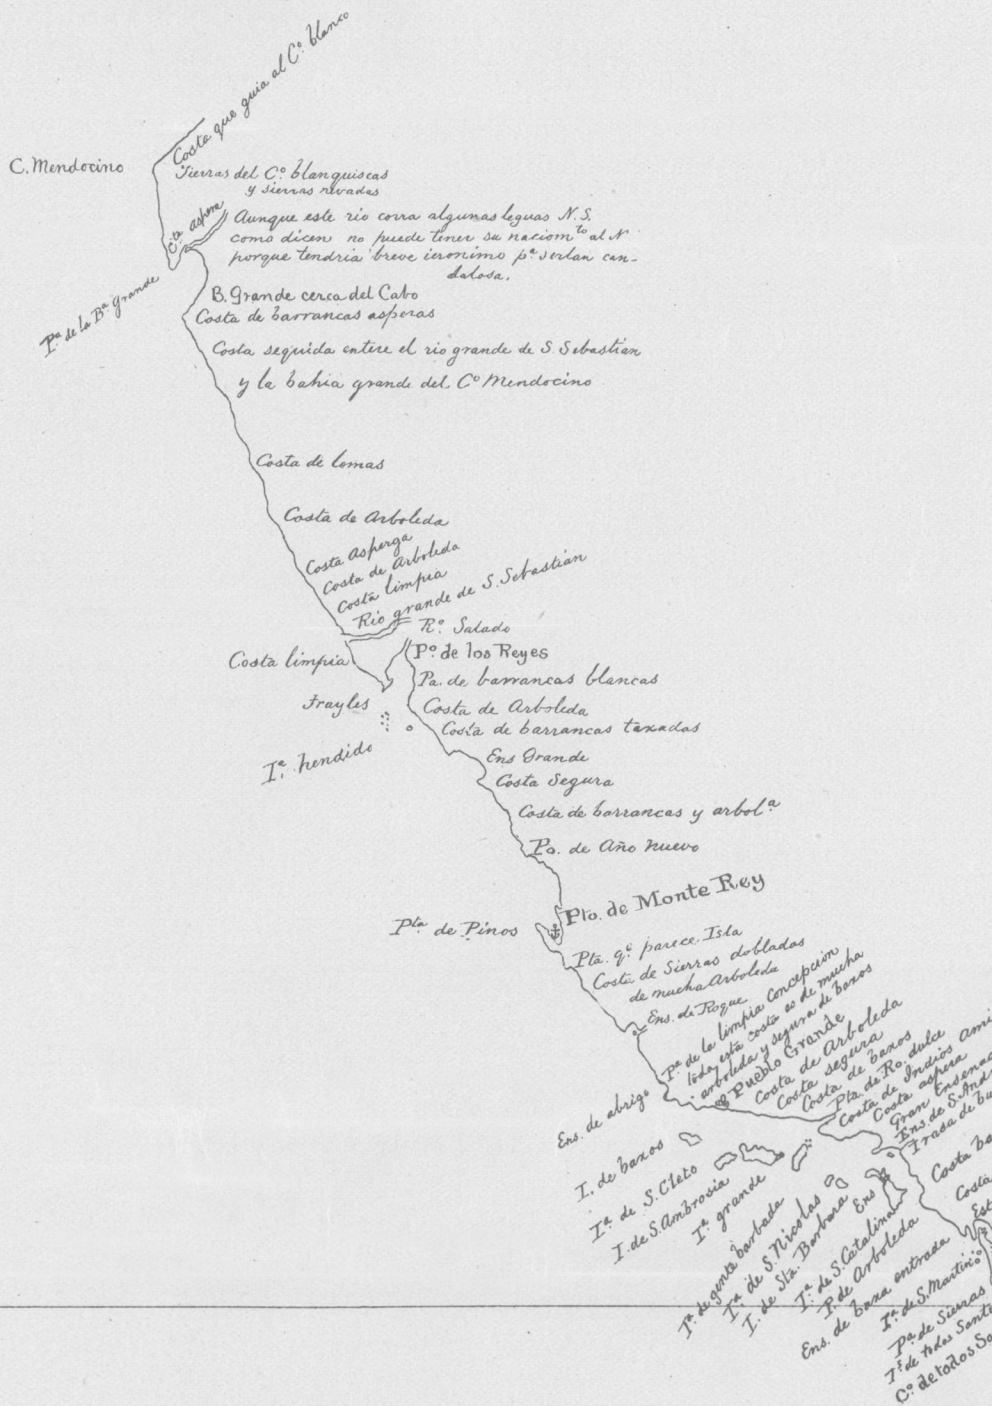 Costa que guia al Cº. blanco
C. Mendocino
Tierras del Cº. blanquiscas
y sierras nevadas
C.ta aspera
Aunque este rio corra algunas leguas N.S.
como dicen no puede tener su naciom.to al N
porque tendria breve ieronimo pª serlan can-
dalosa.
Pª. de la Bª grande
B. Grande cerca del Cabo
Costa de barrancas asperas
Costa seguida entere el rio grande de S. Sebastian
y la bahia grande del Cº Mendocino
Costa de lomas
Costa de Arboleda
Costa Asperga
Costa de Arboleda
Costa limpia
Rio grande de S. Sebastián
Rº. Salado
Pº. de los Reyes
Costa limpia
Pa. de barrancas blancas
Frayles
Costa de Arboleda
Costa de barrancas taxadas
Iª. hendido
Ens Grande
Costa Segura
Costa de barrancas y arbolª
Po. de Año nuevo
Pto. de Monte Rey
Pta de Pinos
Pta. qº. parece Isla
Costa de Sierras dobladas
de mucha Arboleda
Ens. de Roque
Pª de la limpia concepcion
toda esta costa es de mucha
arboleda y segura de baxos
Pueblo Grande
Costa de Arboleda
Costa segura
Costa de baxos
Pta. de Ro. dulce
Costa de Indios ami
Costa aspera
Gran Ensena
Ens. de S. And
Ens. de abrigo
I. de baxos
Iª de S. Cleto
I. de S. Ambrosia
Iª grande
Iª de gente barbada
Iª de S. Nicolas
I. de Sta. Barbara
Ens
Iª de S. Catalina
P. de Arboleda
Ens. de baxa entrada
Costa ba
Costa
Est
Iª de S. Martin
Pª de Sierras
Is de todos Sant
Cº. de todos Sa